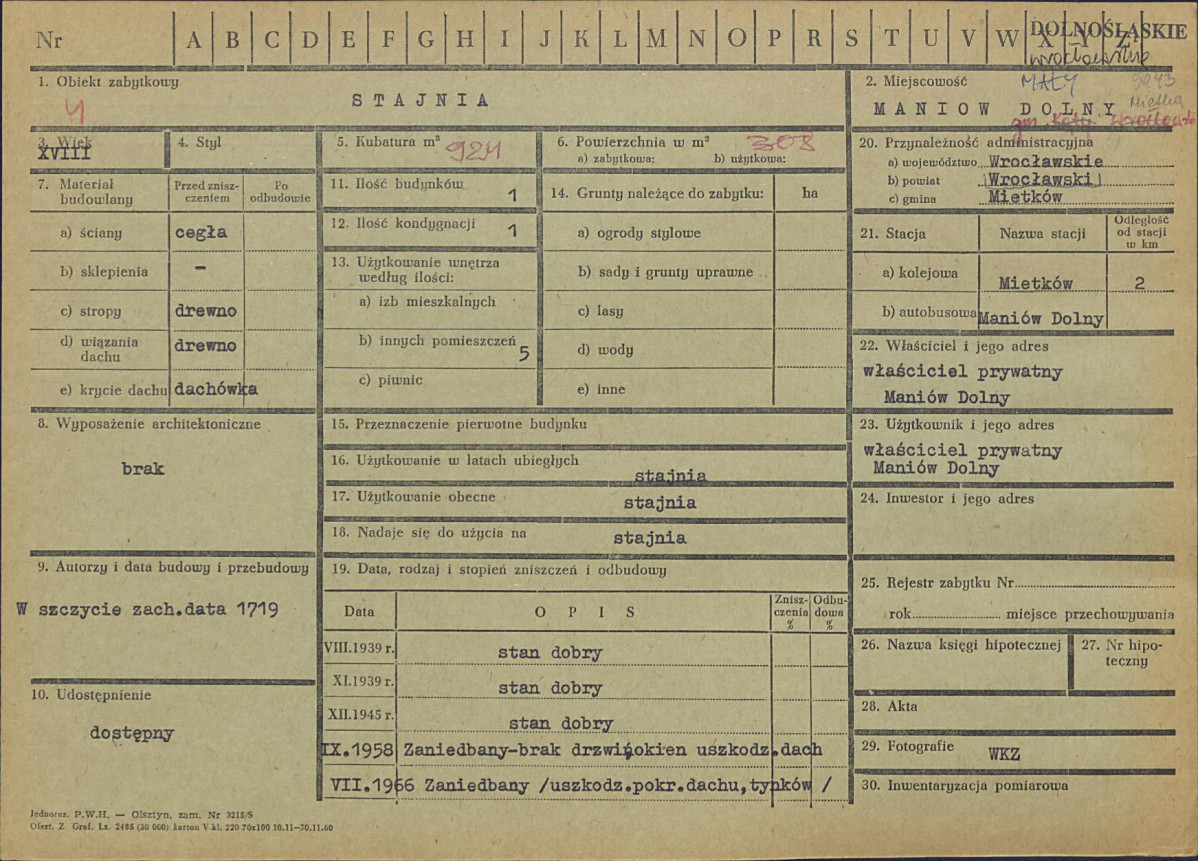 Nr A B C D E F G H I J K L M N O P R S T U V W X Y Z
DOLNOŚLĄSKIE
wrocławskie
1. Obiekt zabytkowy
STAJNIA
4
2. Miejscowość
MAŁY
MANIOW DOLNY
Mietków
gm. Kąty Wrocławskie
3. Wiek
XVIII
4. Styl
5. Kubatura m³ 924
6. Powierzchnia w m² 308
a) zabytkowa: b) użytkowa:
7. Materiał budowlany
Przed zniszczeniem
Po odbudowie
a) ściany cegła
b) sklepienia –
c) stropy drewno
d) wiązania dachu drewno
e) krycie dachu dachówka
8. Wyposażenie architektoniczne
brak
9. Autorzy i data budowy i przebudowy
W szczycie zach.data 1719
10. Udostępnienie
dostępny
11. Ilość budynków 1
12. Ilość kondygnacji 1
13. Użytkowanie wnętrza
według ilości:
a) izb mieszkalnych
b) innych pomieszczeń 5
c) piwnic
14. Grunty należące do zabytku: ha
a) ogrody stylowe
b) sady i grunty uprawne
c) lasy
d) wody
e) inne
15. Przeznaczenie pierwotne budynku
16. Użytkowanie w latach ubiegłych
stajnia
17. Użytkowanie obecne
stajnia
18. Nadaje się do użycia na
stajnia
19. Data, rodzaj i stopień zniszczeń i odbudowy
Data OPIS Zniszczenia % Odbudowa %
VIII.1939 r. stan dobry
XI.1939 r. stan dobry
XII.1945 r. stan dobry
IX.1958 Zaniedbany-brak drzwi,okien uszkodz.dach
VII.1966 Zaniedbany /uszkodz.pokr.dachu,tynków /
20. Przynależność administracyjna
a) województwo Wrocławskie
b) powiat (Wrocławski)
c) gmina Mietków
21. Stacja Nazwa stacji Odległość od stacji w km
a) kolejowa Mietków 2
b) autobusowa Maniów Dolny
22. Właściciel i jego adres
właściciel prywatny
Maniów Dolny
23. Użytkownik i jego adres
właściciel prywatny
Maniów Dolny
24. Inwestor i jego adres
25. Rejestr zabytku Nr
rok miejsce przechowywania
26. Nazwa księgi hipotecznej
27. Nr hipoteczny
28. Akta
29. Fotografie WKZ
30. Inwentaryzacja pomiarowa
Jednoraz. P.W.H. — Olsztyn, zam. Nr 3215/S
Olszt. Z. Graf. Lz. 2485 (30 000) karton V kl. 220 70x100 10.11—70.11.60